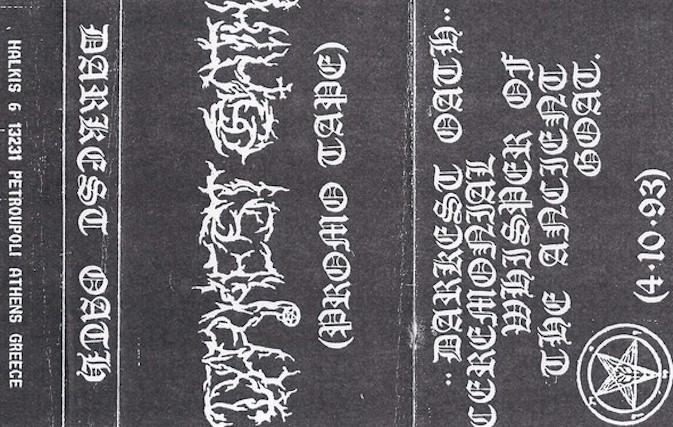 HALKIS 6 13231 PETROUPOLI ATHENS GREECE
DARKEST OATH
(PROMO TAPE)
.. DARKEST OATH..
CEREMONIAL
WHISPER OF
THE ANCIENT
GOAT.
(4·10·93)